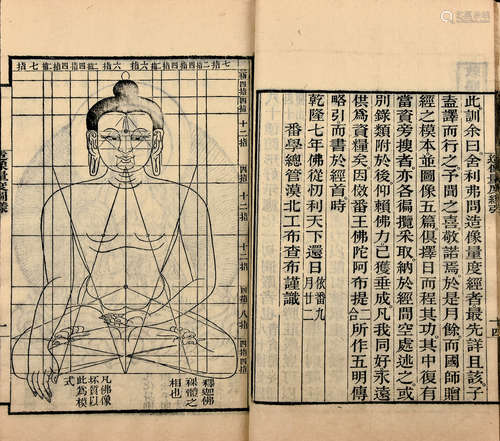 此訓余曰舍利弗問造像量度經者最先詳且該子
盍譯而行之予聞之喜敬諾焉於是月餘而國師贈
經之模本並圖像五篇俱擇日而程其功其中復有
當資旁搜者亦各徧攬采取納於經間空處述之或
別錄類附於後仰賴佛力已獲垂成凡我同好永遠
俱為資糧矣因倣番王佛陀阿布提二合所作五明傳
略引而書於經首時
乾隆七年佛從忉利天下還日依番九月廿二
番學總管漠北工布查布謹識
十四
四指
四指
十二指
四指
十二指
十二指
四指
八指
四指
四指
釋迦佛
祼體之
相也
凡佛像
坯質以
此為模
式